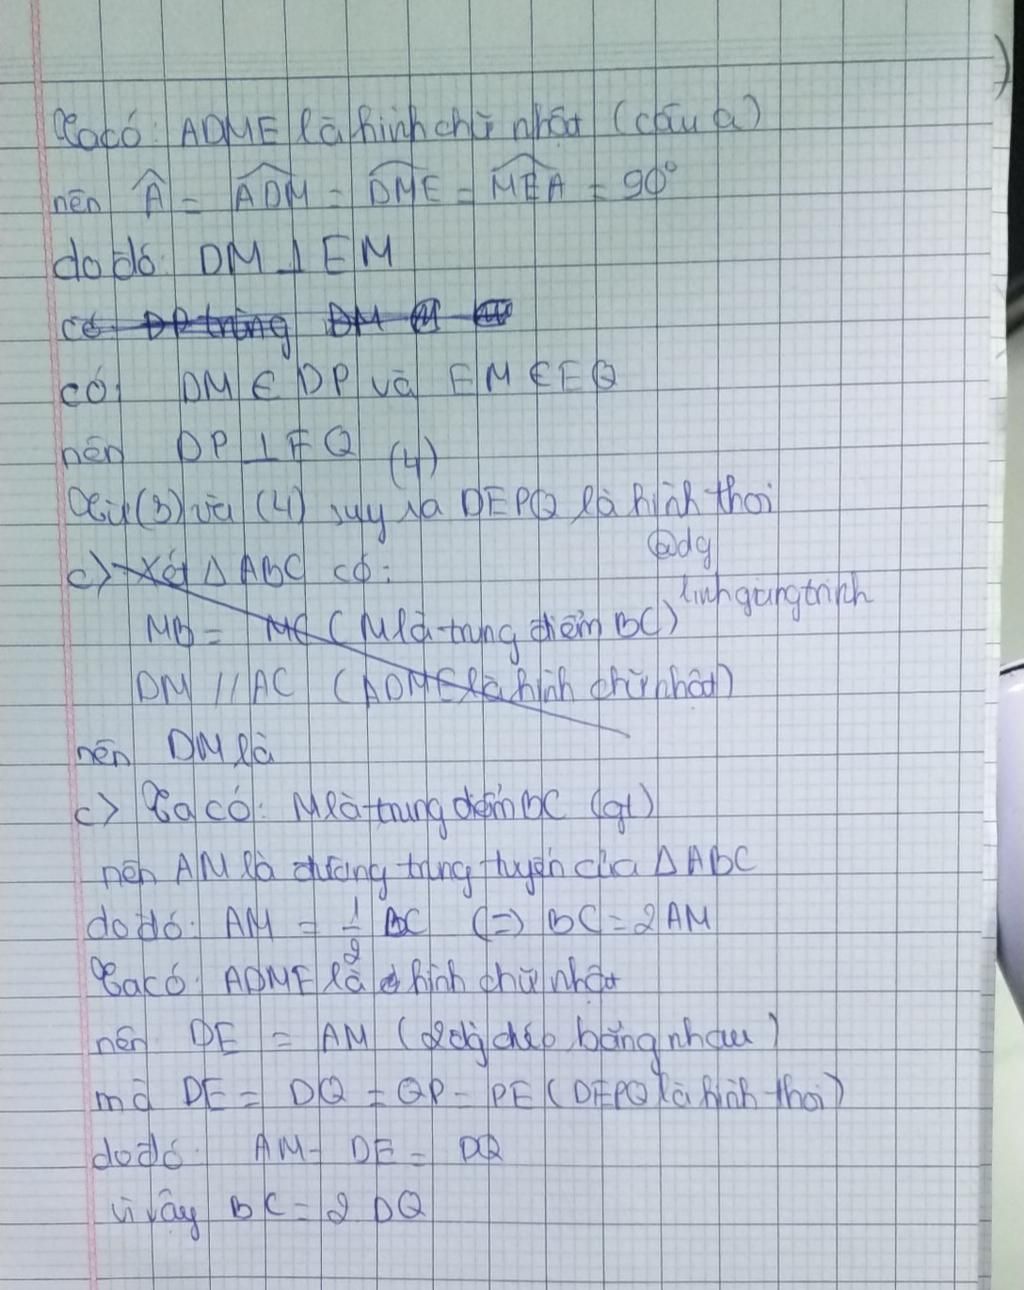 Ta có: ADME là hình chữ nhật (câu a)
nên Â = ADM = DME = MEA = 90°
do đó DM ⊥ EM
có DP trùng DM
có DM ∈ DP và EM ∈ EQ
nên DP ⊥ EQ (4)
Từ (3) và (4) suy ra DEPQ là hình thoi
@dg
linhgiangtrinh
c) Xét △ABC có:
MB = MC (M là trung điểm BC)
DM // AC (ADME là hình chữ nhật)
nên DM là
c) Ta có: M là trung điểm BC (gt)
nên AM là đường trung tuyến của △ABC
do đó: AM = 1/2 BC (=) BC = 2AM
Ta có: ADME là hình chữ nhật
nên DE = AM (2 đg chéo bằng nhau)
mà DE = DQ = QP = PE (DEPQ là hình thoi)
do đó: AM = DE = DQ
vì vậy BC = 2 DQ